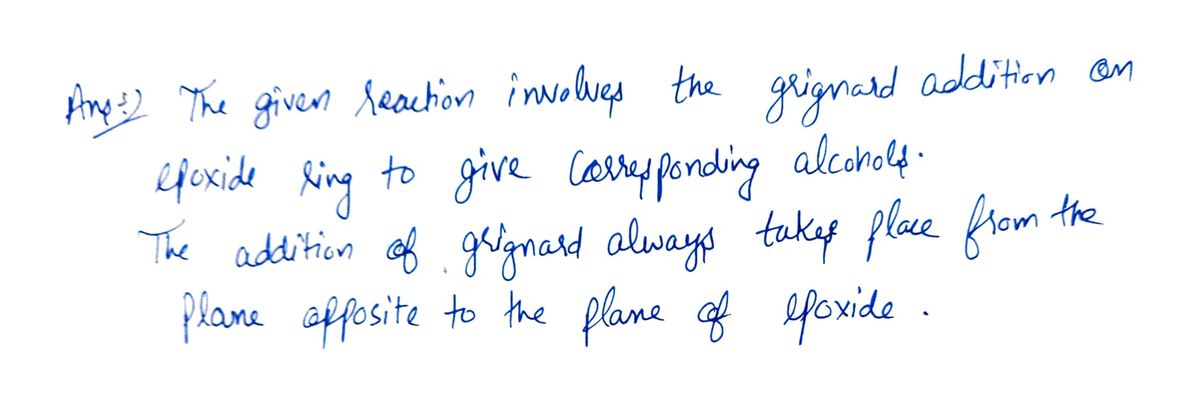 Ans:) The given reaction involves the grignard addition on
epoxide ring to give Corresponding alcohols.
The addition of grignard always takes place from the
Plane opposite to the plane of epoxide.